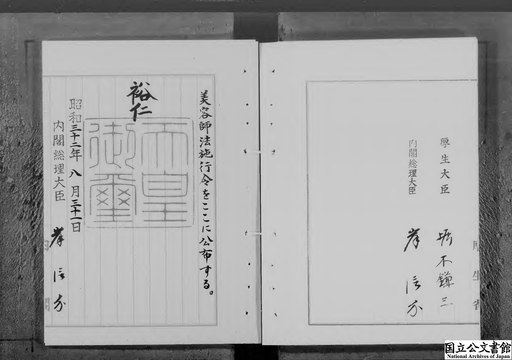 美容師法施行令をここに公布する。
裕仁
天皇御璽
昭和三十二年八月三十一日
内閣総理大臣 岸信介
厚生大臣 堀木鎌三
内閣総理大臣 岸信介
国立公文書館
National Archives of Japan